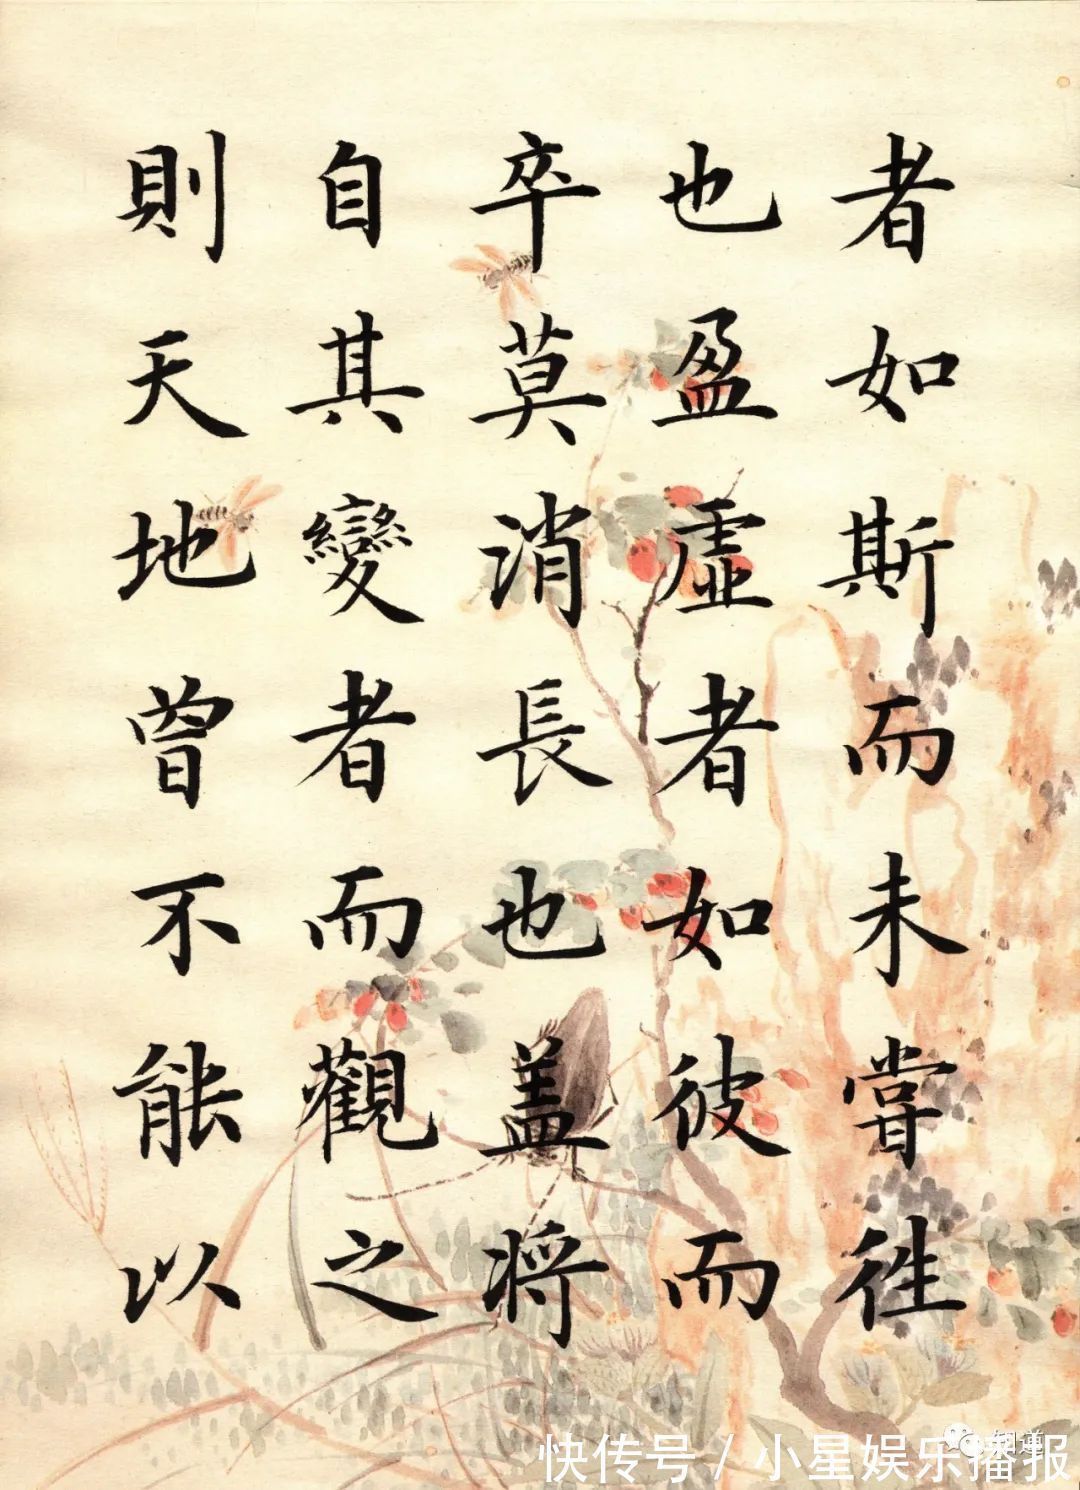 者如斯而未嘗往
也盈虛者如彼而
卒莫消長也盖將
自其變者而觀之
則天地曾不能以
快传号/小星娱乐播报